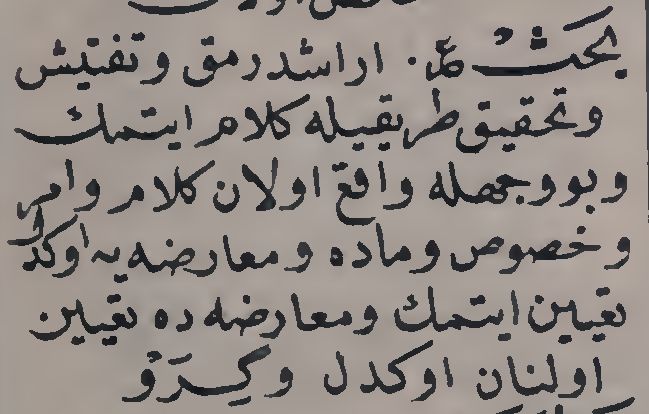 بحث ع. اراشدرمق وتفتيش
وتحقيق طريقيله كلام ايتمك
وبو وجهله واقع اولان كلام وامر
وخصوص وماده ومعارضه يه اوكدل
تعيين ايتمك ومعارضه ده تعيين
اولنان اوكدل وكِرَوْ